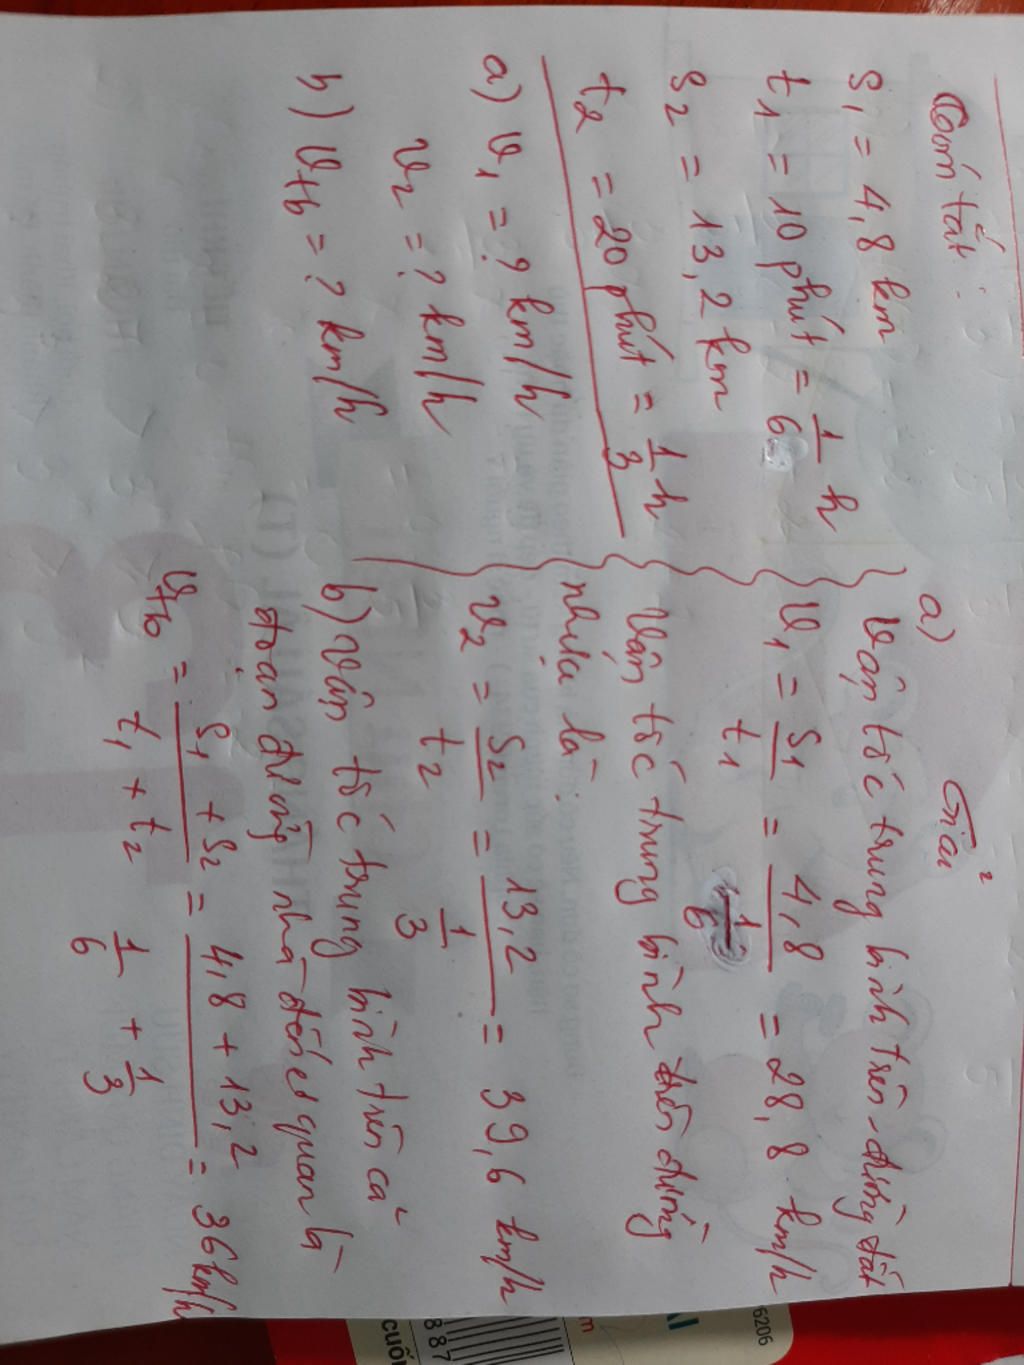 Tóm tắt:
S1 = 4,8 km
t1 = 10 phút = 1/6 h
S2 = 13,2 km
t2 = 20 phút = 1/3 h
a) v1 = ? km/h
v2 = ? km/h
b) vtb = ? km/h
Giải
a)
Vận tốc trung bình trên đường đất
v1 = S1/t1 = 4,8/(1/6) = 28,8 km/h
Vận tốc trung bình trên đường
nhựa là:
v2 = S2/t2 = 13,2/(1/3) = 39,6 km/h
b) Vận tốc trung bình trên cả
đoạn đường nhà đến cơ quan là
vtb = (S1 + S2)/(t1 + t2) = (4,8 + 13,2)/(1/6 + 1/3) = 36 km/h
6206